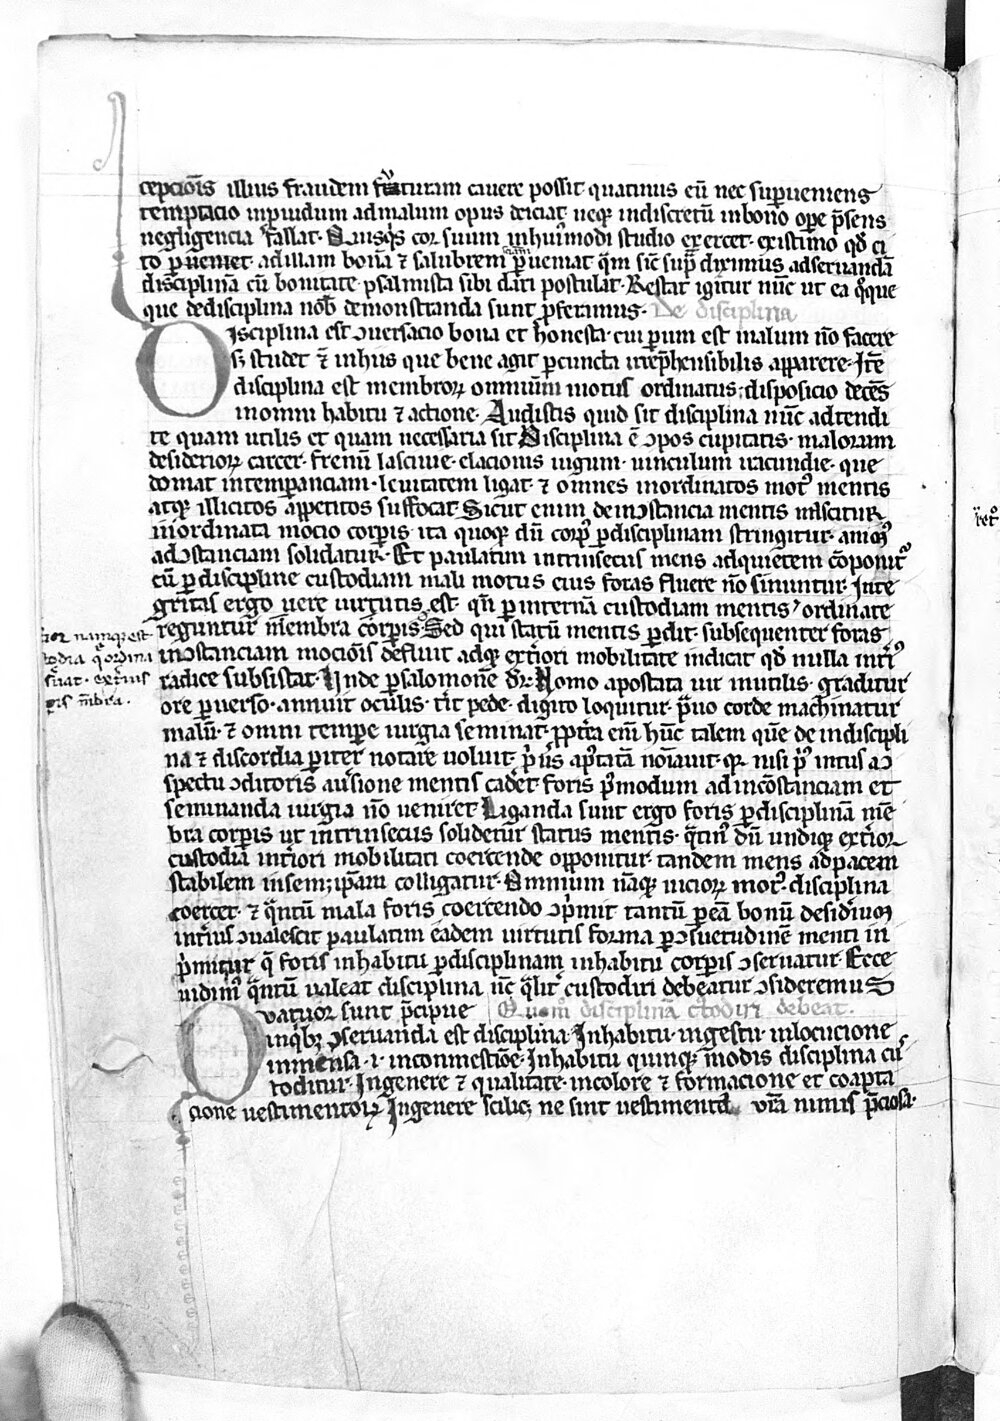 cepcionis illius fraudem futuram cavere possit quatinus cū nec supveniens
temptacio inpiudum ad malum opus deiciat neq; indiscretū in bono ope p̄sens
negligencia fallat· Quisq̄s cor suum in huiꝰmodi studio exercet· existimo qd̄ ci
to pveniet· ad illam bonā ⁊ salubrem sciam pveniat q̄m sic̄ sup̄ diximus ad servandā
disciplinā cū bonitate psalmista sibi dari postulat· Restat igitur nūc ut ea q̄que
que de disciplina nob̄ demonstranda sunt pferimus· De disciplina
Disciplina est ɔversacio bona et honesta· cui parum est malum nō facere
sꝫ studet ⁊ in hiis que bene agit p cuncta irrep̄hensibilis apparere· Itē
disciplina est membroꝝ omnium motus ordinatus· disposicio decēs
in omni habitu ⁊ actione· Audistis quid sit disciplina nūc adtendi
te quam utilis et quam necessaria sit Disciplina ē ɔpos cupitatis· malorum
desiderioꝝ carcer· frenū lascivie· elacionis iugum· vinculum iracundie· que
domat intemperanciam· levitatem ligat· ⁊ omnes inordinatos motꝰ mentis
atq; illicitos appetitos suffocat Sicut enim de inɔstancia mentis nascitur
inordinata mocio corpis· ita quoq; dū corpꝰ p disciplinam stringitur· animꝰ
ad ɔstanciam solidatur· Et paulatim intrinsecus mens ad quietem cōponitꝰ
cū p discipline custodiam mali motus eius foras fluere nō sinuntur· Inte
gritas ergo vere virtutis est· qn̄ p internā custodiam mentis ordinate
reguntur membra corpis Sed qui statū mentis pdit· subsequenter foras
in inɔstanciam mocionis defluit adq; ext̄iori mobilitate indicat qd̄ nulla int̄iꝰ
radice subsistat· Unde p salomonē dr̄· Homo apostata vir inutilis· graditur
ore pverso· annuit oculis· t̄it pede· digito loquitur· p̄vo corde machinatur
malū· ⁊ omni tempe iurgia seminat· ppt̄ea enī hūc talem quē de indiscipli
na ⁊ discordia pariter notare voluit· pꝰ iis aptatā noīavit· q nisi pꝰ intus a ɔ
spectu ɔditoris aversione mentis cadet foris pꝰmodum ad incōstanciam et
seminanda iurgia nō veniret Liganda sunt ergo foris p disciplinā mē
bra corpis ut intrinsecus solidetur status mentis· q̄tinꝰ dū undiq; ext̄ioꝝ
custodia int̄iori mobilitati coercende opponitur· tandem mens ad pacem
stabilem in semꝫ ipam colligatur· Omnium nāq; vicioꝝ motꝰ disciplina
coercet· ⁊ q̄ntū mala foris coercendo ɔp̄mit tantū p eā bonū desid̄ium
int̄ius ɔvalescit paulatim eadem virtutis forma p ɔsuetudinē menti in
p̄mitur q̄ foris in habitu p disciplinam in habitu corpis ɔservatur Ecce
vidimꝰ q̄ntū valeat disciplina nc̄ q̄lit̄ custodiri debeatur ɔsideremus
Quatuor sunt p̄cipue Quomꝰ disciplinā c̄todiri debeat·
in q̄bꝫ ɔservanda est disciplina· In habitu· in gestu· in locucione
in mensa· i· in conmestiōe· In habitu quinq; modis disciplina cuꝰ
toditur· In genere ⁊ qualitate· in colore ⁊ formacione et coapta
cione vestimentoꝝ In genere scilicꝫ ne sint vestimenta vr̄a nimis p̄ciosa·
namq; est
todia q̄ ordina
ext̄ius
pis mbra.